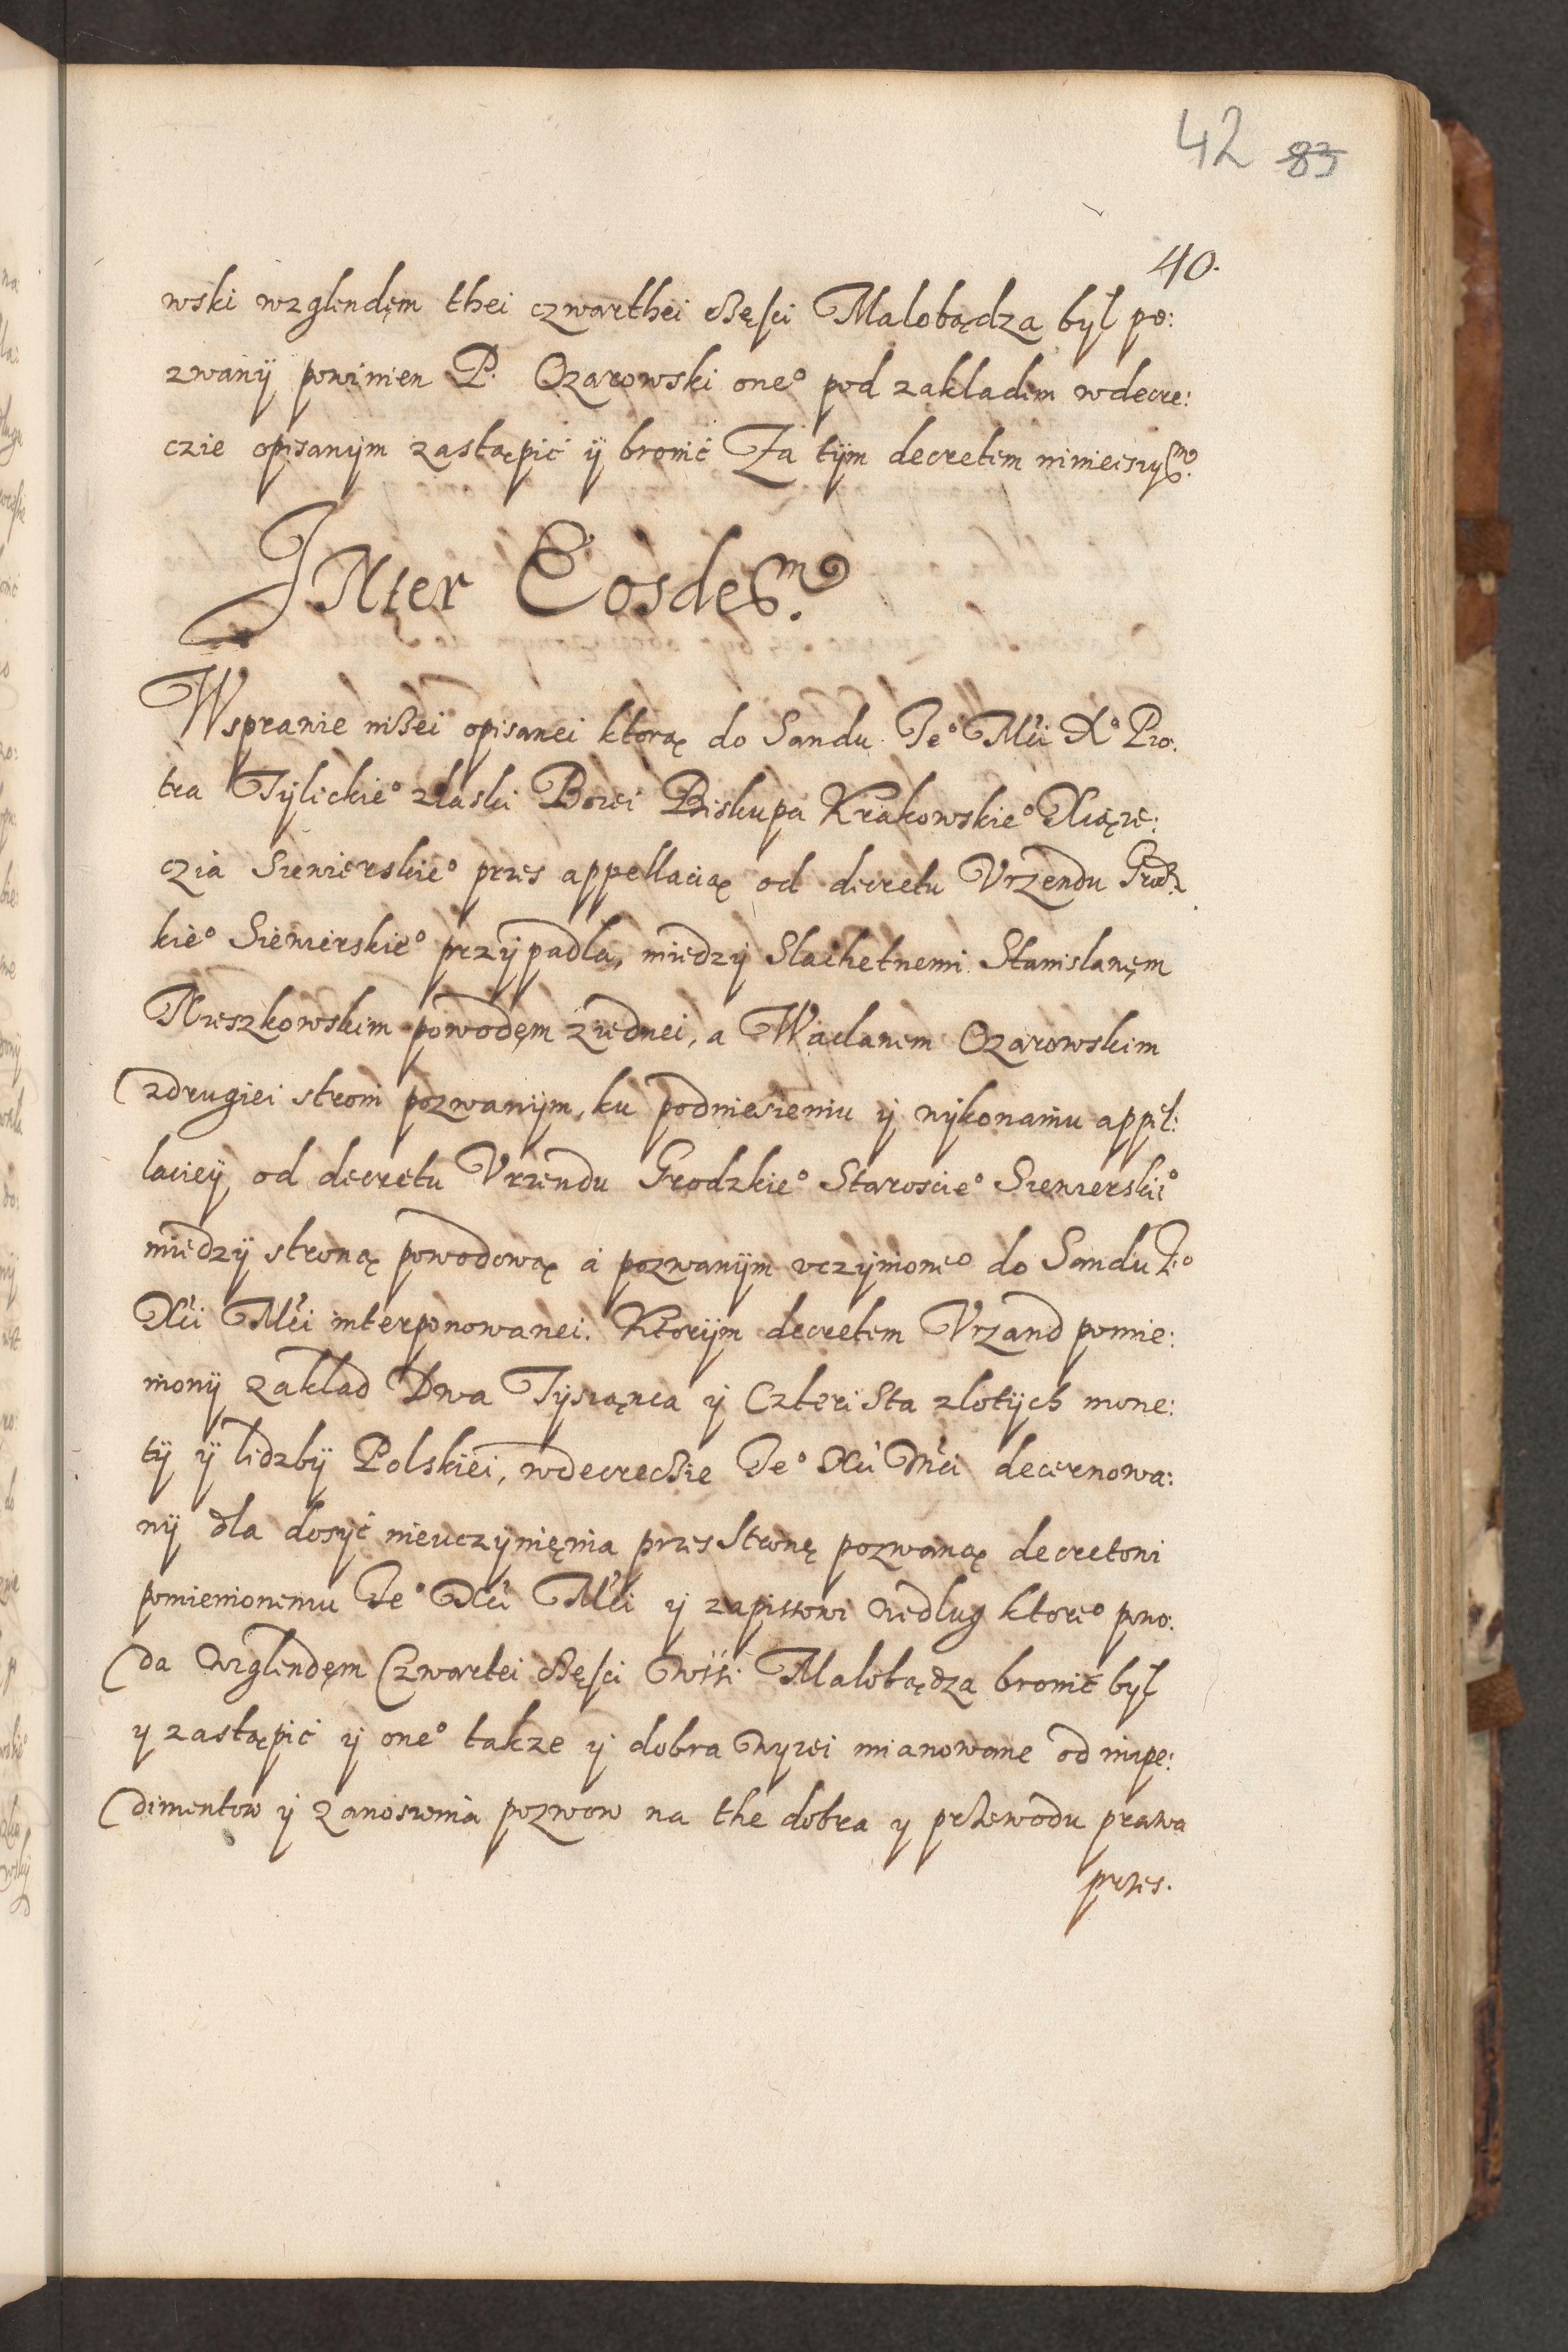 42 83
40.
wski wzglendęm thei czwarthei cßęści Malobądza był po:
zwanÿ powinien P. Ozarowski one° pod zakladem wdecre:
czie opisanÿm zastąpić ÿ bronić Za tÿm decretem ninieiszym.
INter Eosdem.
Wsprawie nißei opisanei ktorą do Sandu Je° Mći X° Pio:
tra Tÿlickie° zlaski Bozei Biskupa Krakowskie° Xiąże:
czia Siewierskie° przes appellacią od decretu Vrzendu Grodz
kie° Siewierskie° przÿpadla, miedzÿ Slachetnemi Stanislawęm
Mieszkowskim powodęm ziednei, a Waclawem Ozarowskim
zdrugiei stroni pozwanÿm, ku podniesieniu ÿ wÿkonaniu appel:
laciey od decretu Vrzendu Grodzkie° Staroscie° Siewierskie°
miedzÿ stroną powodową á pozwanÿm vczÿnione° do Sandu Je°
Xći Mći interponowanei. Ktorÿm decretem Vrzand pomie:
nionÿ zaklad Dwa Tÿsiąnca ÿ Czteri Sta zlotÿch mone:
tÿ ÿ lidzbÿ Polskiei, wdecrecßie Je° Xći Mći decernowa:
nÿ dla dosÿć nieuczÿnięnia przes Stronę pozwaną decretowi
pomienionemu Je° Xći Mći ÿ zapissowi wedlug ktore° powo:
da wzglendęm Czwartei cßęści wśśi Malobądza bronić był
y zastąpić ÿ one° takze ÿ dobra wyzei mianowane od impe:
dimentow ÿ zanosienia pozwow na the dobra y przewodu prawa
przes.